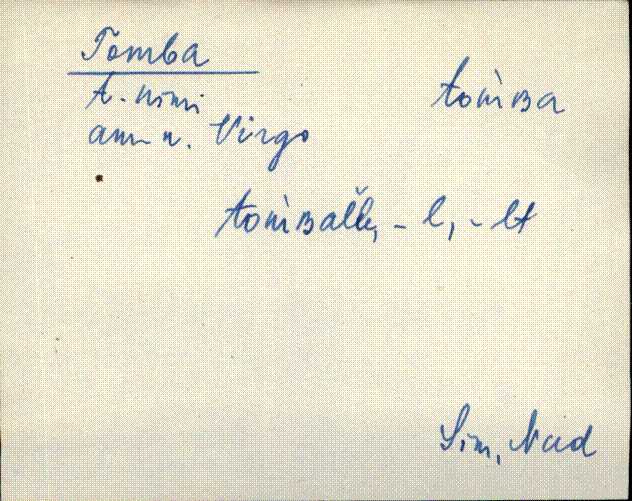 Tomba
t. nimi
amm n. Virgo
tom̀ʙa
tom̀ʙalle, - l, - lt
Sim, Naid